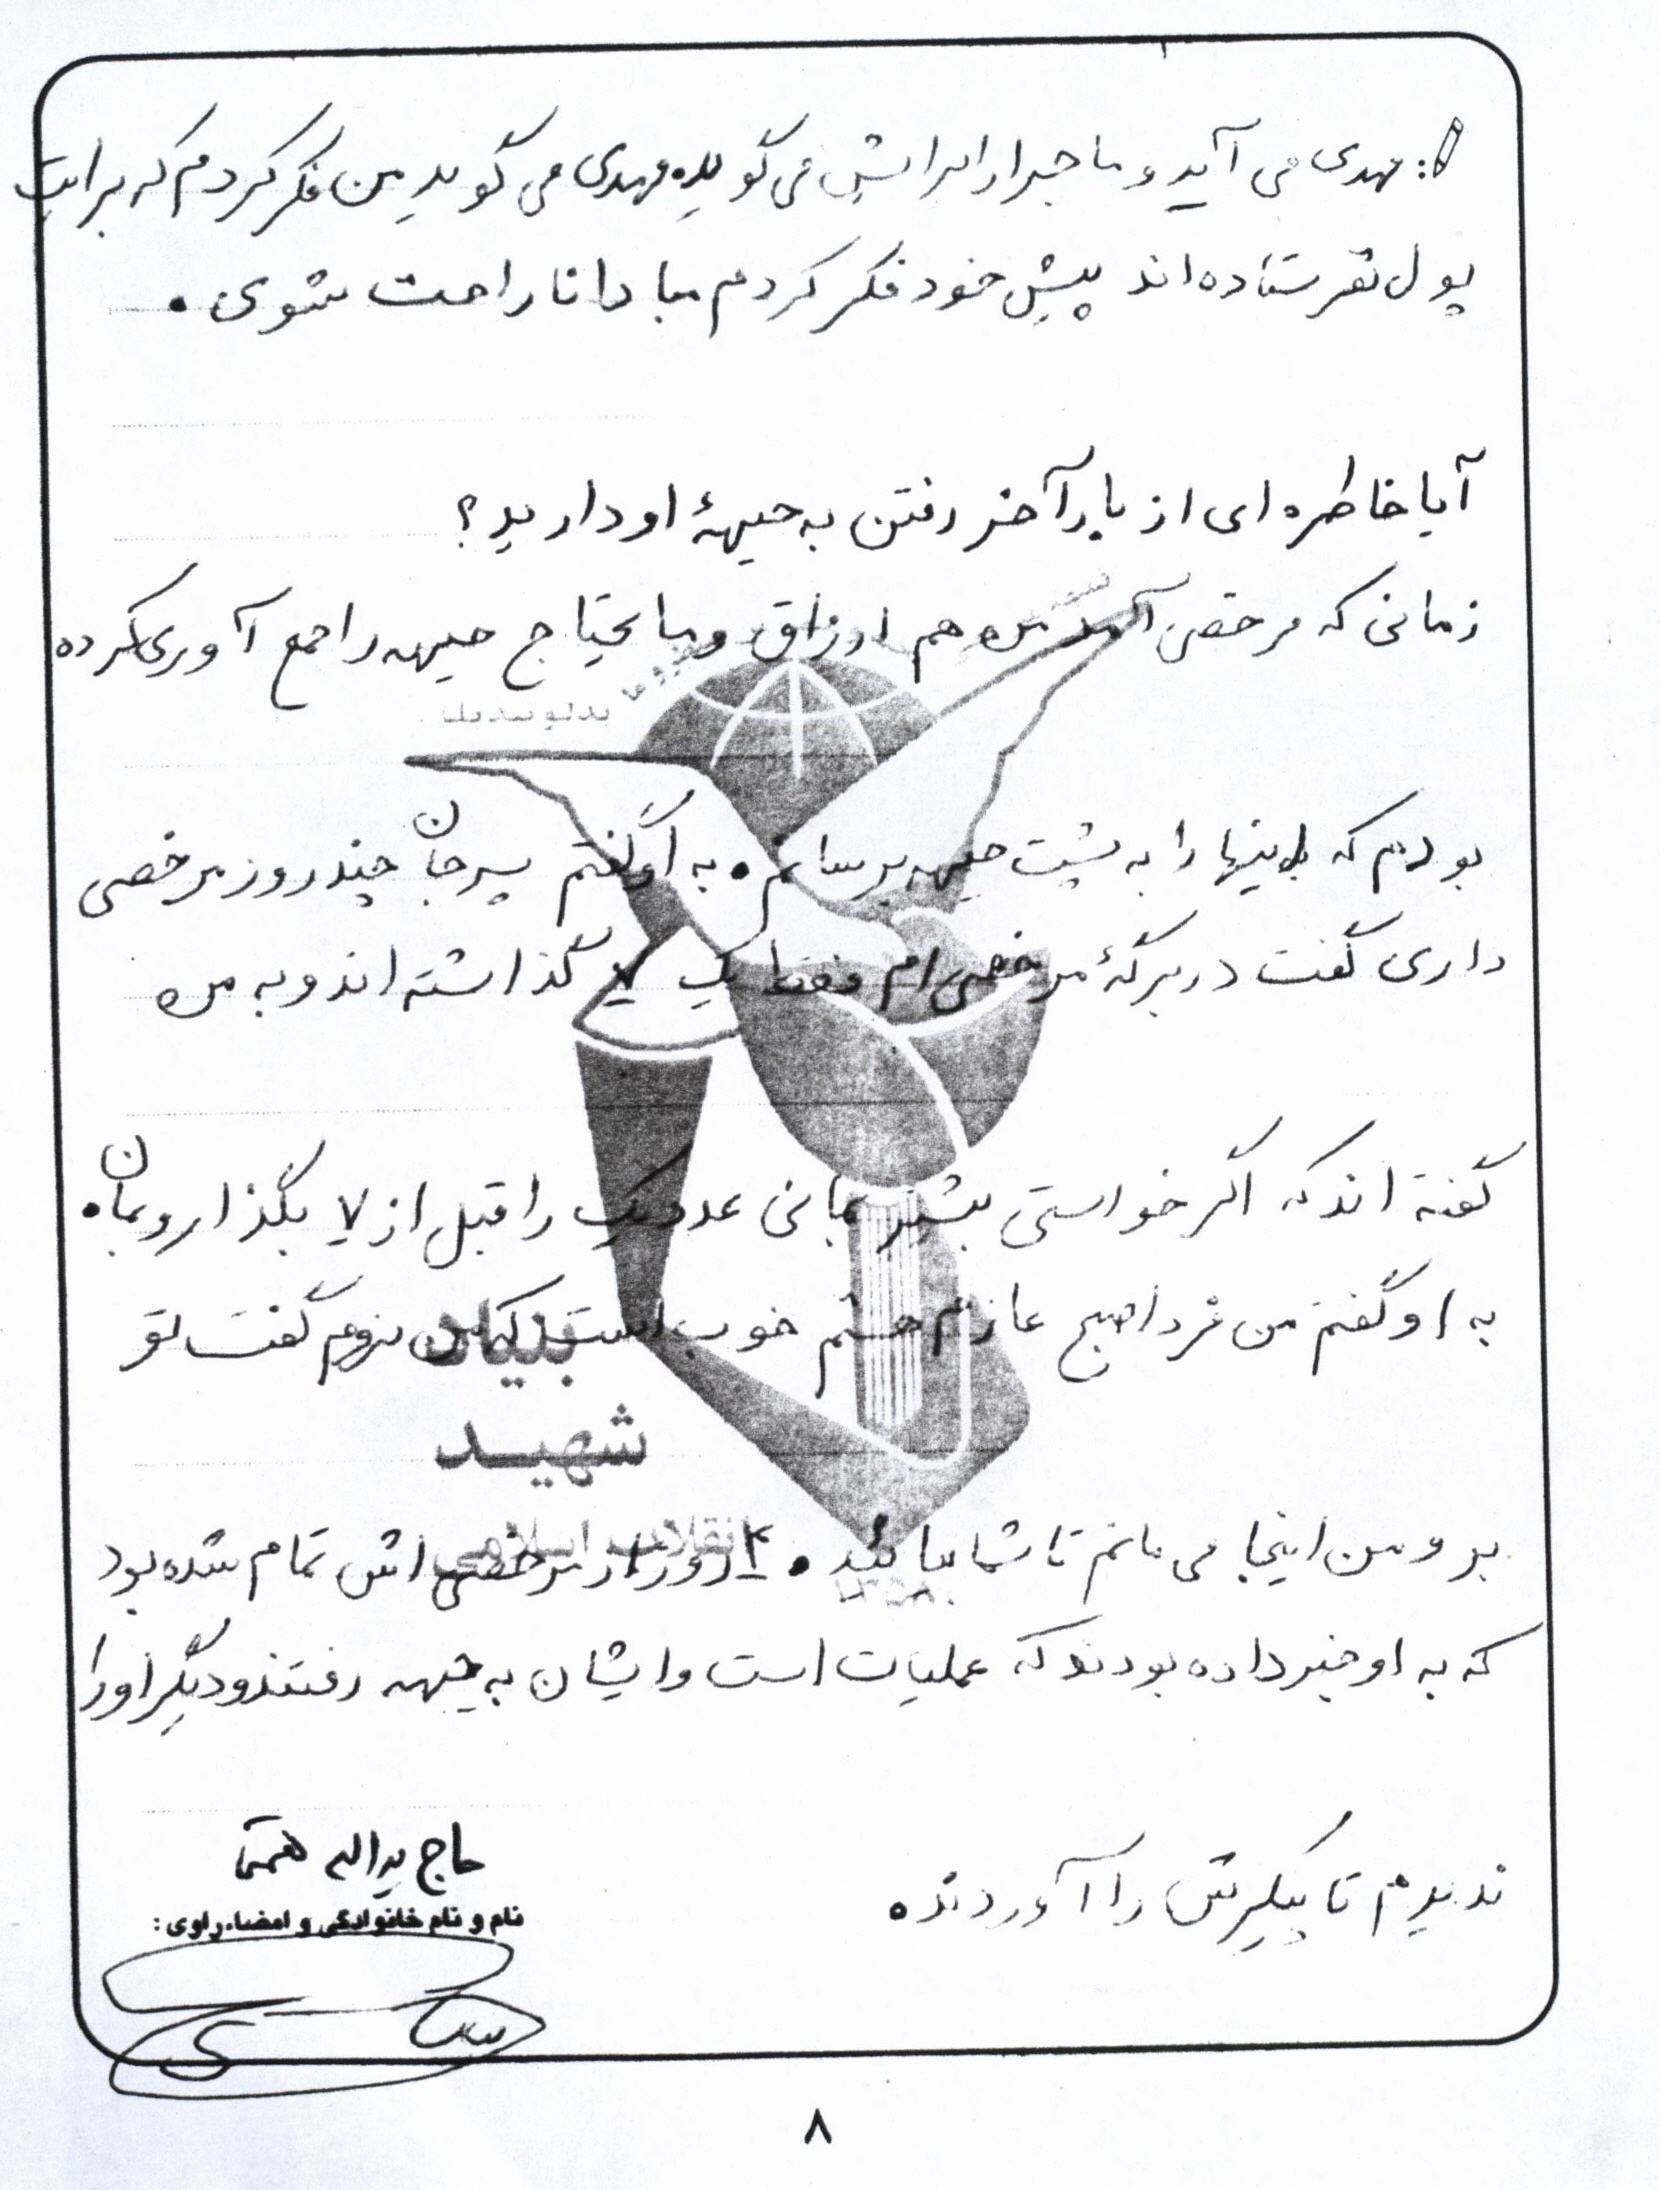 : مهدی می آید و ماجرا را برایش می گوید. مهدی می گوید من فکر کردم که برایت
پول نفرستاده اند پیش خود فکر کردم مبادا ناراحت شوی.
آیا خاطره ای از بار آخر رفتن به جبهۀ او دارید؟
زمانی که مرخصی آمد من هم ارزاق و مایحتاج جبهه را جمع آوری کرده
بودم که اینها را به پشت جبهه برسانم. به او گفتم پسر جان چند روز مرخصی
داری گفت در برگۀ مرخصی ام فقط یک ۷ گذاشته اند و به من
گفته اند که اگر خواستی بیشتر بمانی عدد یک را قبل از ۷ بگذار و بمان.
به او گفتم من فردا صبح عازم هستم خوب است که من نروم گفت تو
برو من اینجا می مانم تا شما بیائید. ۴ روز از مرخصی اش تمام شده بود
که به او خبر داده بودند که عملیات است و ایشان به جبهه رفتند و دیگر او را
ندیدم تا پیکرش را آوردند.
حاج یداله همتی
نام و نام خانوادگی و امضاء راوی:
بنیاد
شهید
انقلاب اسلامی
۸